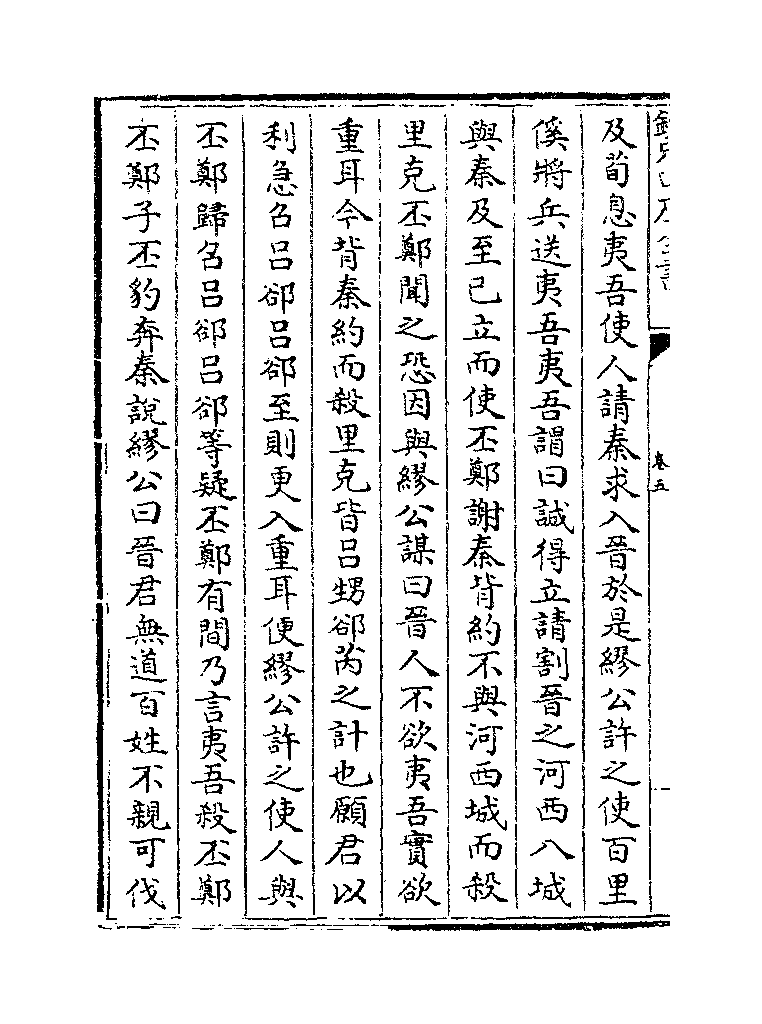 及荀息夷吾使人請秦求入晉於是繆公許之使百里
傒將兵送夷吾夷吾謂曰誠得立請割晉之河西八城
與秦及至已立而使丕鄭謝秦背約不與河西城而殺
里克丕鄭聞之恐因與繆公謀曰晉人不欲夷吾實欲
重耳今背秦約而殺里克皆吕甥郤芮之計也願君以
利急召吕郤吕郤至則更入重耳便繆公許之使人與
丕鄭歸召吕郤吕郤等疑丕鄭有間乃言夷吾殺丕鄭
丕鄭子丕豹奔秦說繆公曰晉君無道百姓不親可伐
卷五